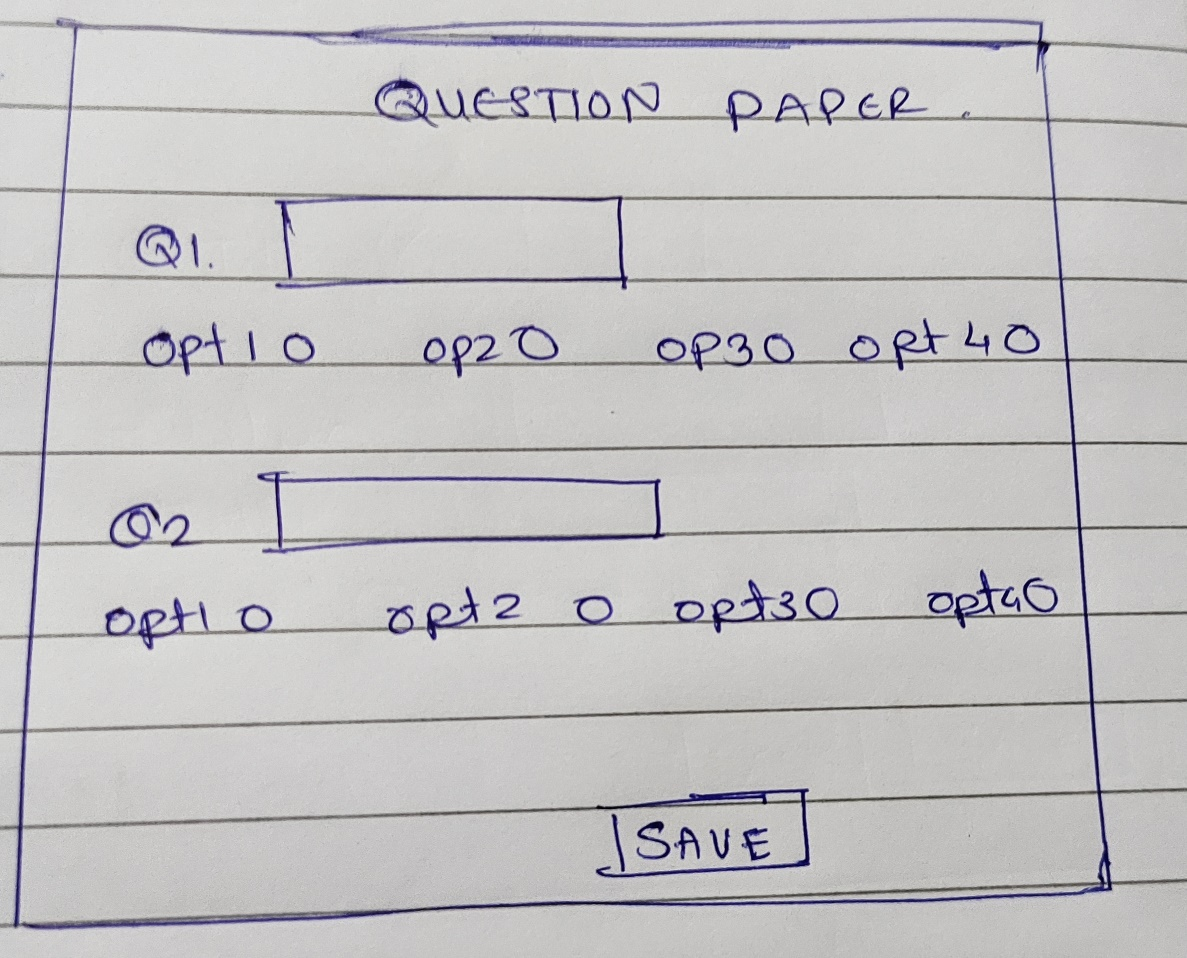 QUESTION PAPER.
Q1.
opt1 O op2 O OP3 O opt 4 O
Q2
opt1 O opt2 O opt3 O opt4 O
SAVE